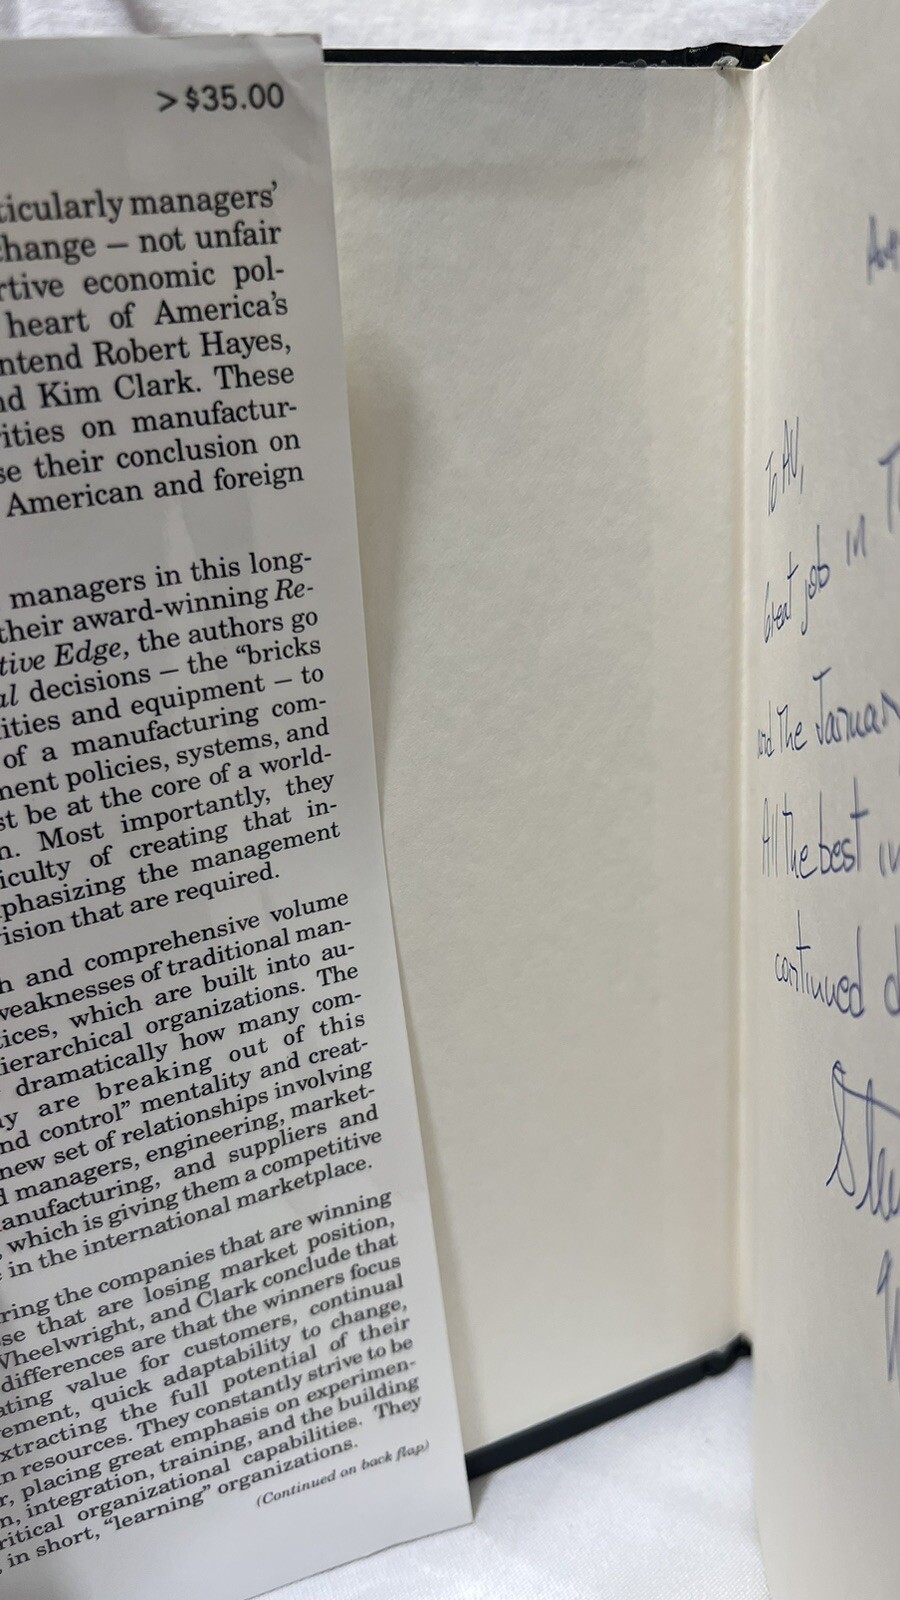 >$35.00
ticularly managers'
change – not unfair
rtive economic pol-
heart of America's
ntend Robert Hayes,
nd Kim Clark. These
rities on manufactur-
se their conclusion on
American and foreign
managers in this long-
their award-winning Re-
tive Edge, the authors go
al decisions – the "bricks
ities and equipment – to
of a manufacturing com-
ment policies, systems, and
st be at the core of a world-
n. Most importantly, they
iculty of creating that in-
phasizing the management
ision that are required.
h and comprehensive volume
weaknesses of traditional man-
tices, which are built into au-
ierarchical organizations. The
dramatically how many com-
ny are breaking out of this
nd control" mentality and creat-
new set of relationships involving
d managers, engineering, market-
anufacturing, and suppliers and
, which is giving them a competitive
e in the international marketplace.
ring the companies that are winning
se that are losing market position,
Wheelwright, and Clark conclude that
differences are that the winners focus
ating value for customers, continual
ement, quick adaptability to change,
xtracting the full potential of their
n resources. They constantly strive to be
r, placing great emphasis on experimen-
n, integration, training, and the building
ritical organizational capabilities. They
, in short, "learning" organizations.
(Continued on back flap)
To AV,
Great job in T
and the Januar
All the best in
continued d